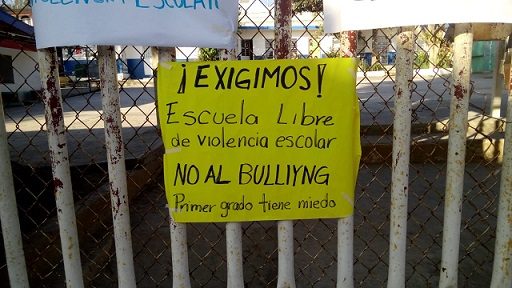 VIOLENCIA ESCOLAR
¡EXIGIMOS!
Escuela Libre
de violencia escolar
NO AL BULLIYNG
Primer grado tiene miedo